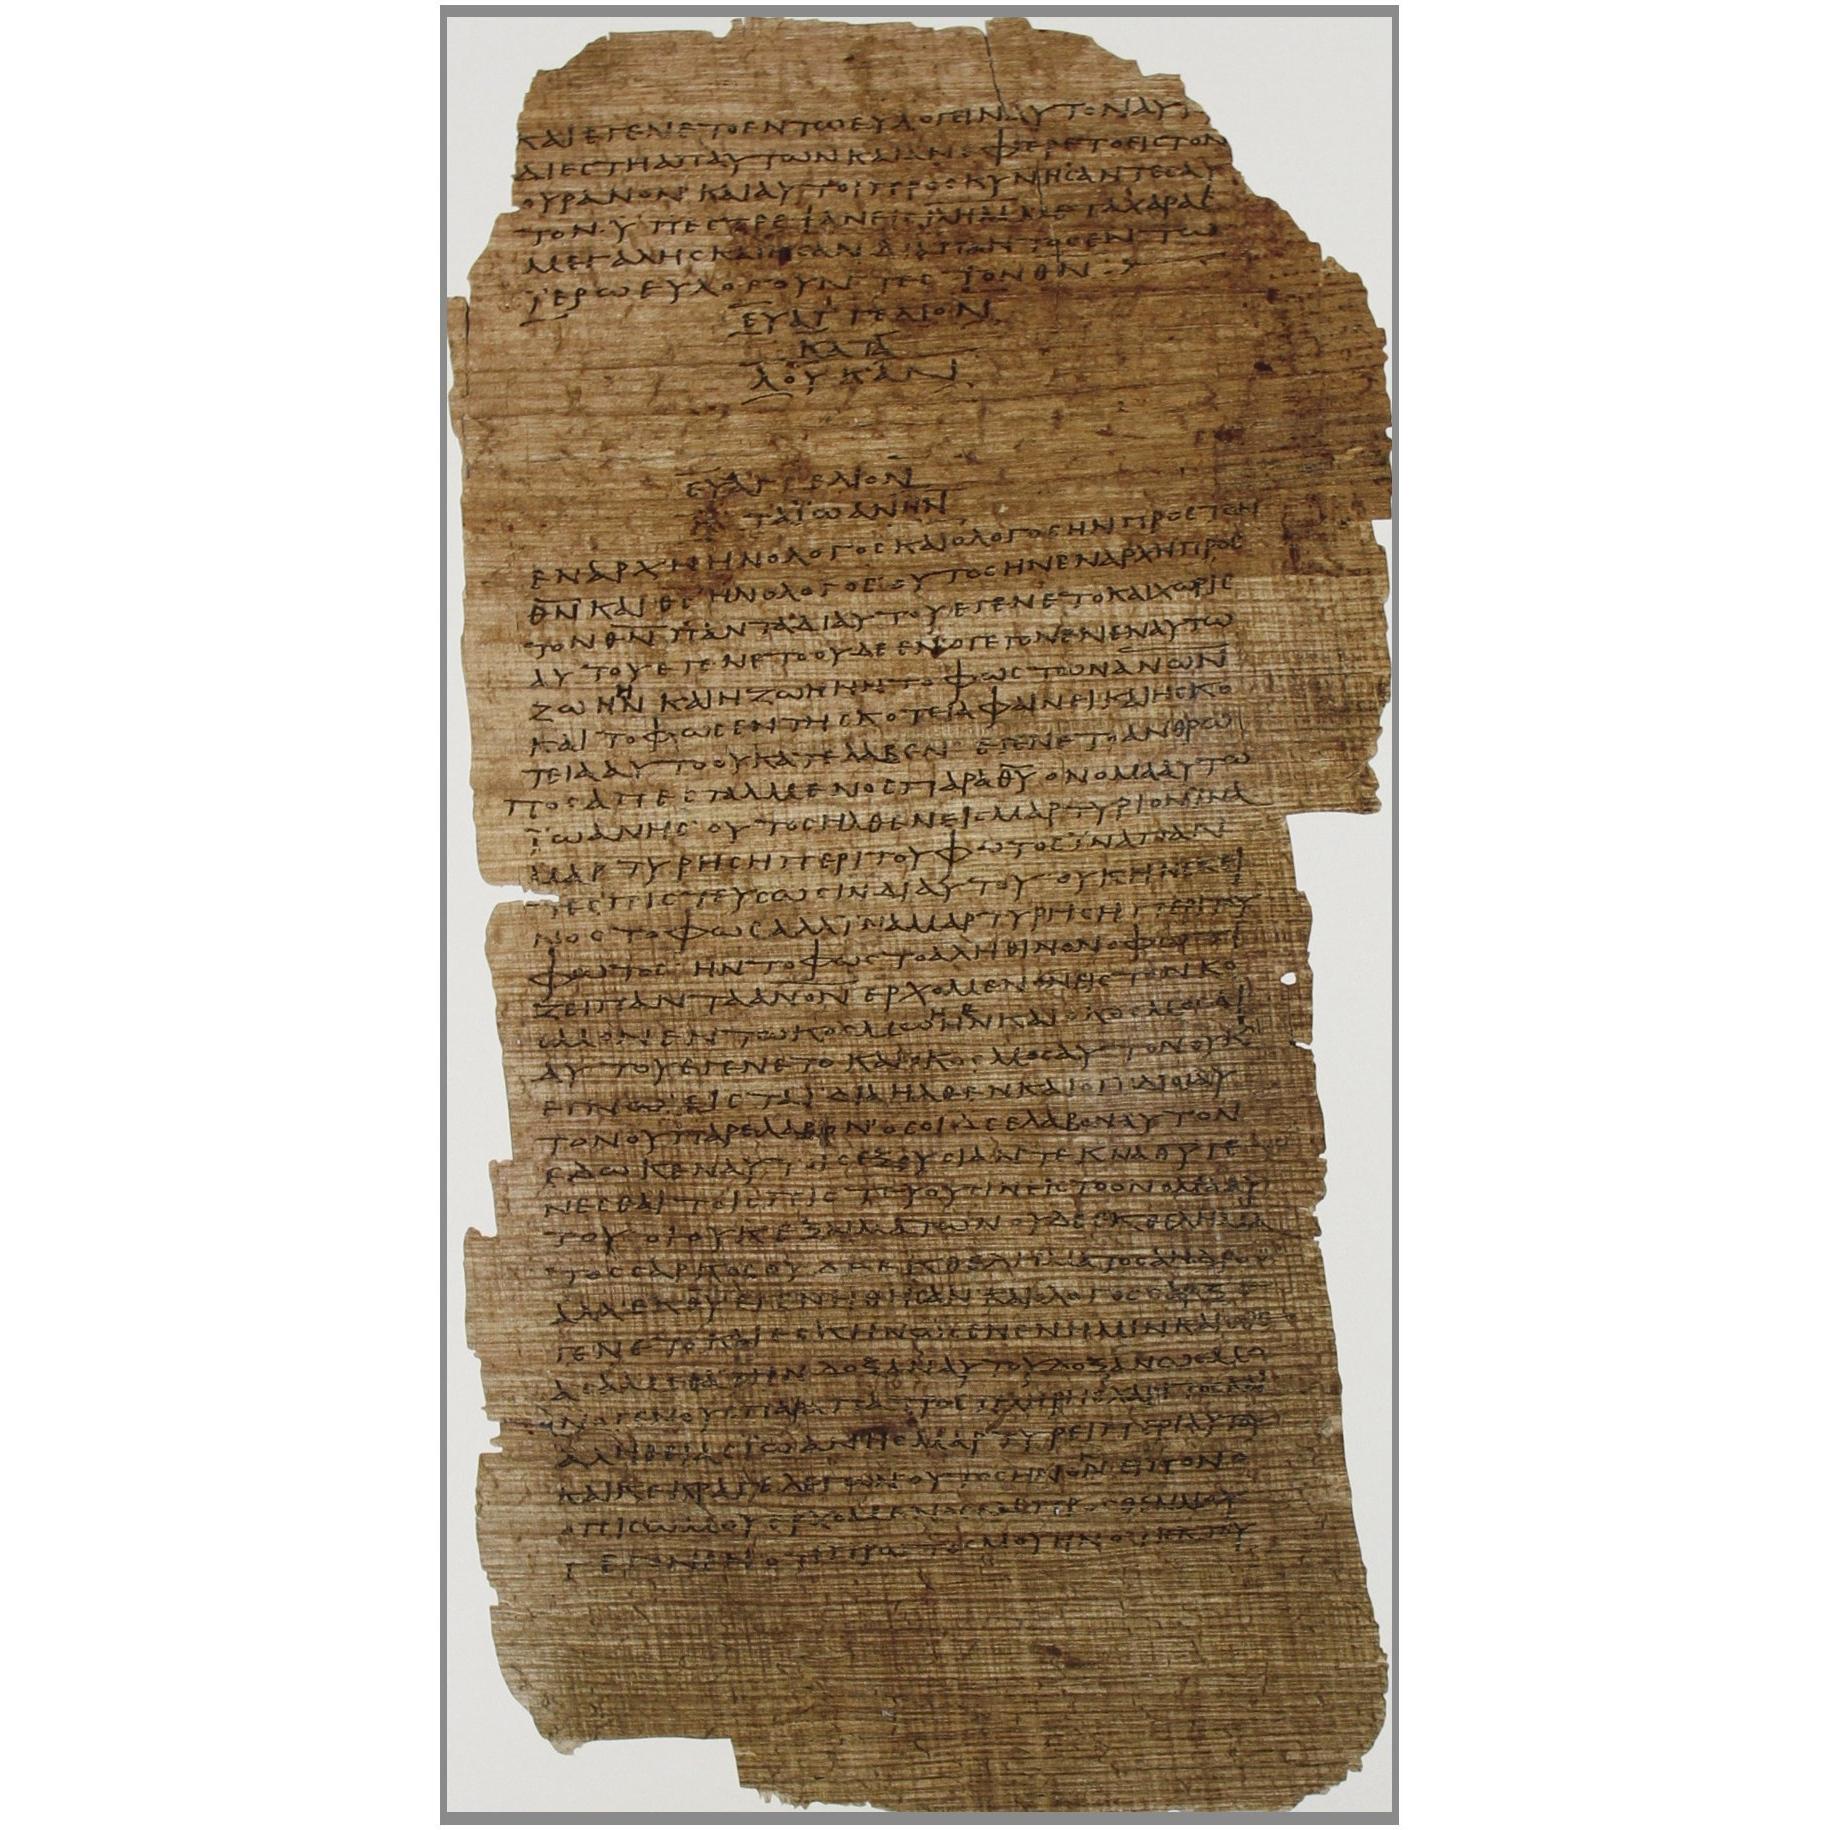 ΚΑΙΕΓΕΝΕΤΟΕΝΤΩΕΥΛΟΓΕΙΝΑΥΤΟΝΑΥΤ
ΔΙΕϹΤΗΑΠΑΥΤΩΝΚΑΙΑΝΕΦΕΡΕΤΟΕΙϹΤΟΝ
ΟΥΡΑΝΟΝ·ΚΑΙΑΥΤΟΙΠΡΟϹΚΥΝΗϹΑΝΤΕϹΑΥ
ΤΟΝ·ΥΠΕϹΤΡΕΨΑΝΕΙϹΙΛΗΜΜΕΤΑΧΑΡΑϹ
ΜΕΓΑΛΗϹΚΑΙΗϹΑΝΔΙΑΠΑΝΤΟϹΕΝΤΩ
ΪΕΡΩΕΥΛΟΓΟΥΝΤΕϹΤΟΝΘ̅Ν̅
ΕΥΑΓΓΕΛΙΟΝ
ΚΑΤΑ
ΛΟΥΚΑΝ
ΕΥΑΓΓΕΛΙΟΝ
ΚΑΤΑΪΩΑΝΗΝ
ΕΝΑΡΧΗΗΝΟΛΟΓΟϹΚΑΙΟΛΟΓΟϹΗΝΠΡΟϹΤΟΝ
Θ̅Ν̅ΚΑΙΘ̅Ϲ̅ΗΝΟΛΟΓΟϹΟΥΤΟϹΗΝΕΝΑΡΧΗΠΡΟϹ
ΤΟΝΘ̅Ν̅ΠΑΝΤΑΔΙΑΥΤΟΥΕΓΕΝΕΤΟΚΑΙΧΩΡΙϹ
ΑΥΤΟΥΕΓΕΝΕΤΟΟΥΔΕΕΝ·ΟΓΕΓΟΝΕΝΕΝΑΥΤΩ
ΖΩΗΗΝΚΑΙΗΖΩΗΗΝΤΟΦΩϹΤΩΝΑ̅Ν̅Ω̅Ν̅
ΚΑΙΤΟΦΩϹΕΝΤΗϹΚΟΤΕΙΑΦΑΙΝΕΙΚΑΙΗϹΚΟ
ΤΕΙΑΑΥΤΟΟΥΚΑΤΕΛΑΒΕΝ·ΕΓΕΝΕΤΟΑΝΘΡΩ
ΠΟϹΑΠΕϹΤΑΛΜΕΝΟϹΠΑΡΑΘ̅Υ̅ΟΝΟΜΑΑΥΤΩ
ΪΩΑΝΗϹ·ΟΥΤΟϹΗΛΘΕΝΕΙϹΜΑΡΤΥΡΙΟΝΪΝΑ
ΜΑΡΤΥΡΗϹΗΠΕΡΙΤΟΥΦΩΤΟϹΪΝΑΠΑΝ
ΤΕϹΠΙϹΤΕΥϹΩϹΙΝΔΙΑΥΤΟΥ·ΟΥΚΗΝΕΚΕΙ
ΝΟϹΤΟΦΩϹΑΛΛΪΝΑΜΑΡΤΥΡΗϹΗΠΕΡΙΤΟΥ
ΦΩΤΟϹ·ΗΝΤΟΦΩϹΤΟΑΛΗΘΙΝΟΝΟΦΩΤΙ
ΖΕΙΠΑΝΤΑΑ̅Ν̅Ο̅Ν̅ΕΡΧΟΜΕΝΟΝΕΙϹΤΟΝΚΟ
ϹΜΟΝ·ΕΝΤΩΚΟϹΜΩΗΝΚΑΙΟΚΟϹΜΟϹΔΙ
ΑΥΤΟΥΕΓΕΝΕΤΟΚΑΙΟΚΟϹΜΟϹΑΥΤΟΝΟΥΚ
ΕΓΝΩ·ΕΙϹΤΑΪΔΙΑΗΛΘΕΝΚΑΙΟΙΪΔΙΟΙΑΥ
ΤΟΝΟΥΠΑΡΕΛΑΒΟΝ·ΟϹΟΙΔΕΕΛΑΒΟΝΑΥΤΟΝ
ΕΔΩΚΕΝΑΥΤΟΙϹΕΞΟΥϹΙΑΝΤΕΚΝΑΘ̅Υ̅ΓΕ
ΝΕϹΘΑΙΤΟΙϹΠΙϹΤΕΥΟΥϹΙΝΕΙϹΤΟΟΝΟΜΑΑΥ
ΤΟΥ·ΟΙΟΥΚΕΞΑΙΜΑΤΩΝΟΥΔΕΕΚΘΕΛΗΜΑ
ΤΟϹϹΑΡΚΟϹΟΥΔΕΕΚΘΕΛΗΜΑΤΟϹΑΝΔΡΟϹ
ΑΛΛΕΚΘ̅Υ̅ΕΓΕΝΗΘΗϹΑΝΚΑΙΟΛΟΓΟϹϹΑΡΞΕ
ΓΕΝΕΤΟΚΑΙΕϹΚΗΝΩϹΕΝΕΝΗΜΙΝΚΑΙΕΘΕ
ΑϹΑΜΕΘΑΤΗΝΔΟΞΑΝΑΥΤΟΥΔΟΞΑΝΩϹΜΟ
ΝΟΓΕΝΟΥϹΠΑΡΑΠΑΤΡΟϹΠΛΗΡΗϹΧΑΡΙΤΟϹΚΑΙ
ΑΛΗΘΕΙΑϹΪΩΑΝΗϹΜΑΡΤΥΡΕΙΠΕΡΙΑΥΤΟΥ
ΚΑΙΚΕΚΡΑΓΕΛΕΓΩΝΟΥΤΟϹΗΝΟΝΕΙΠΟΝΟ
ΟΠΙϹΩΜΟΥΕΡΧΟΜΕΝΟϹΕΜΠΡΟϹΘΕΝΜΟΥ
ΓΕΓΟΝΕΝΟΤΙΠΡΩΤΟϹΜΟΥΗΝΟΤΙΕΚΤΟΥ